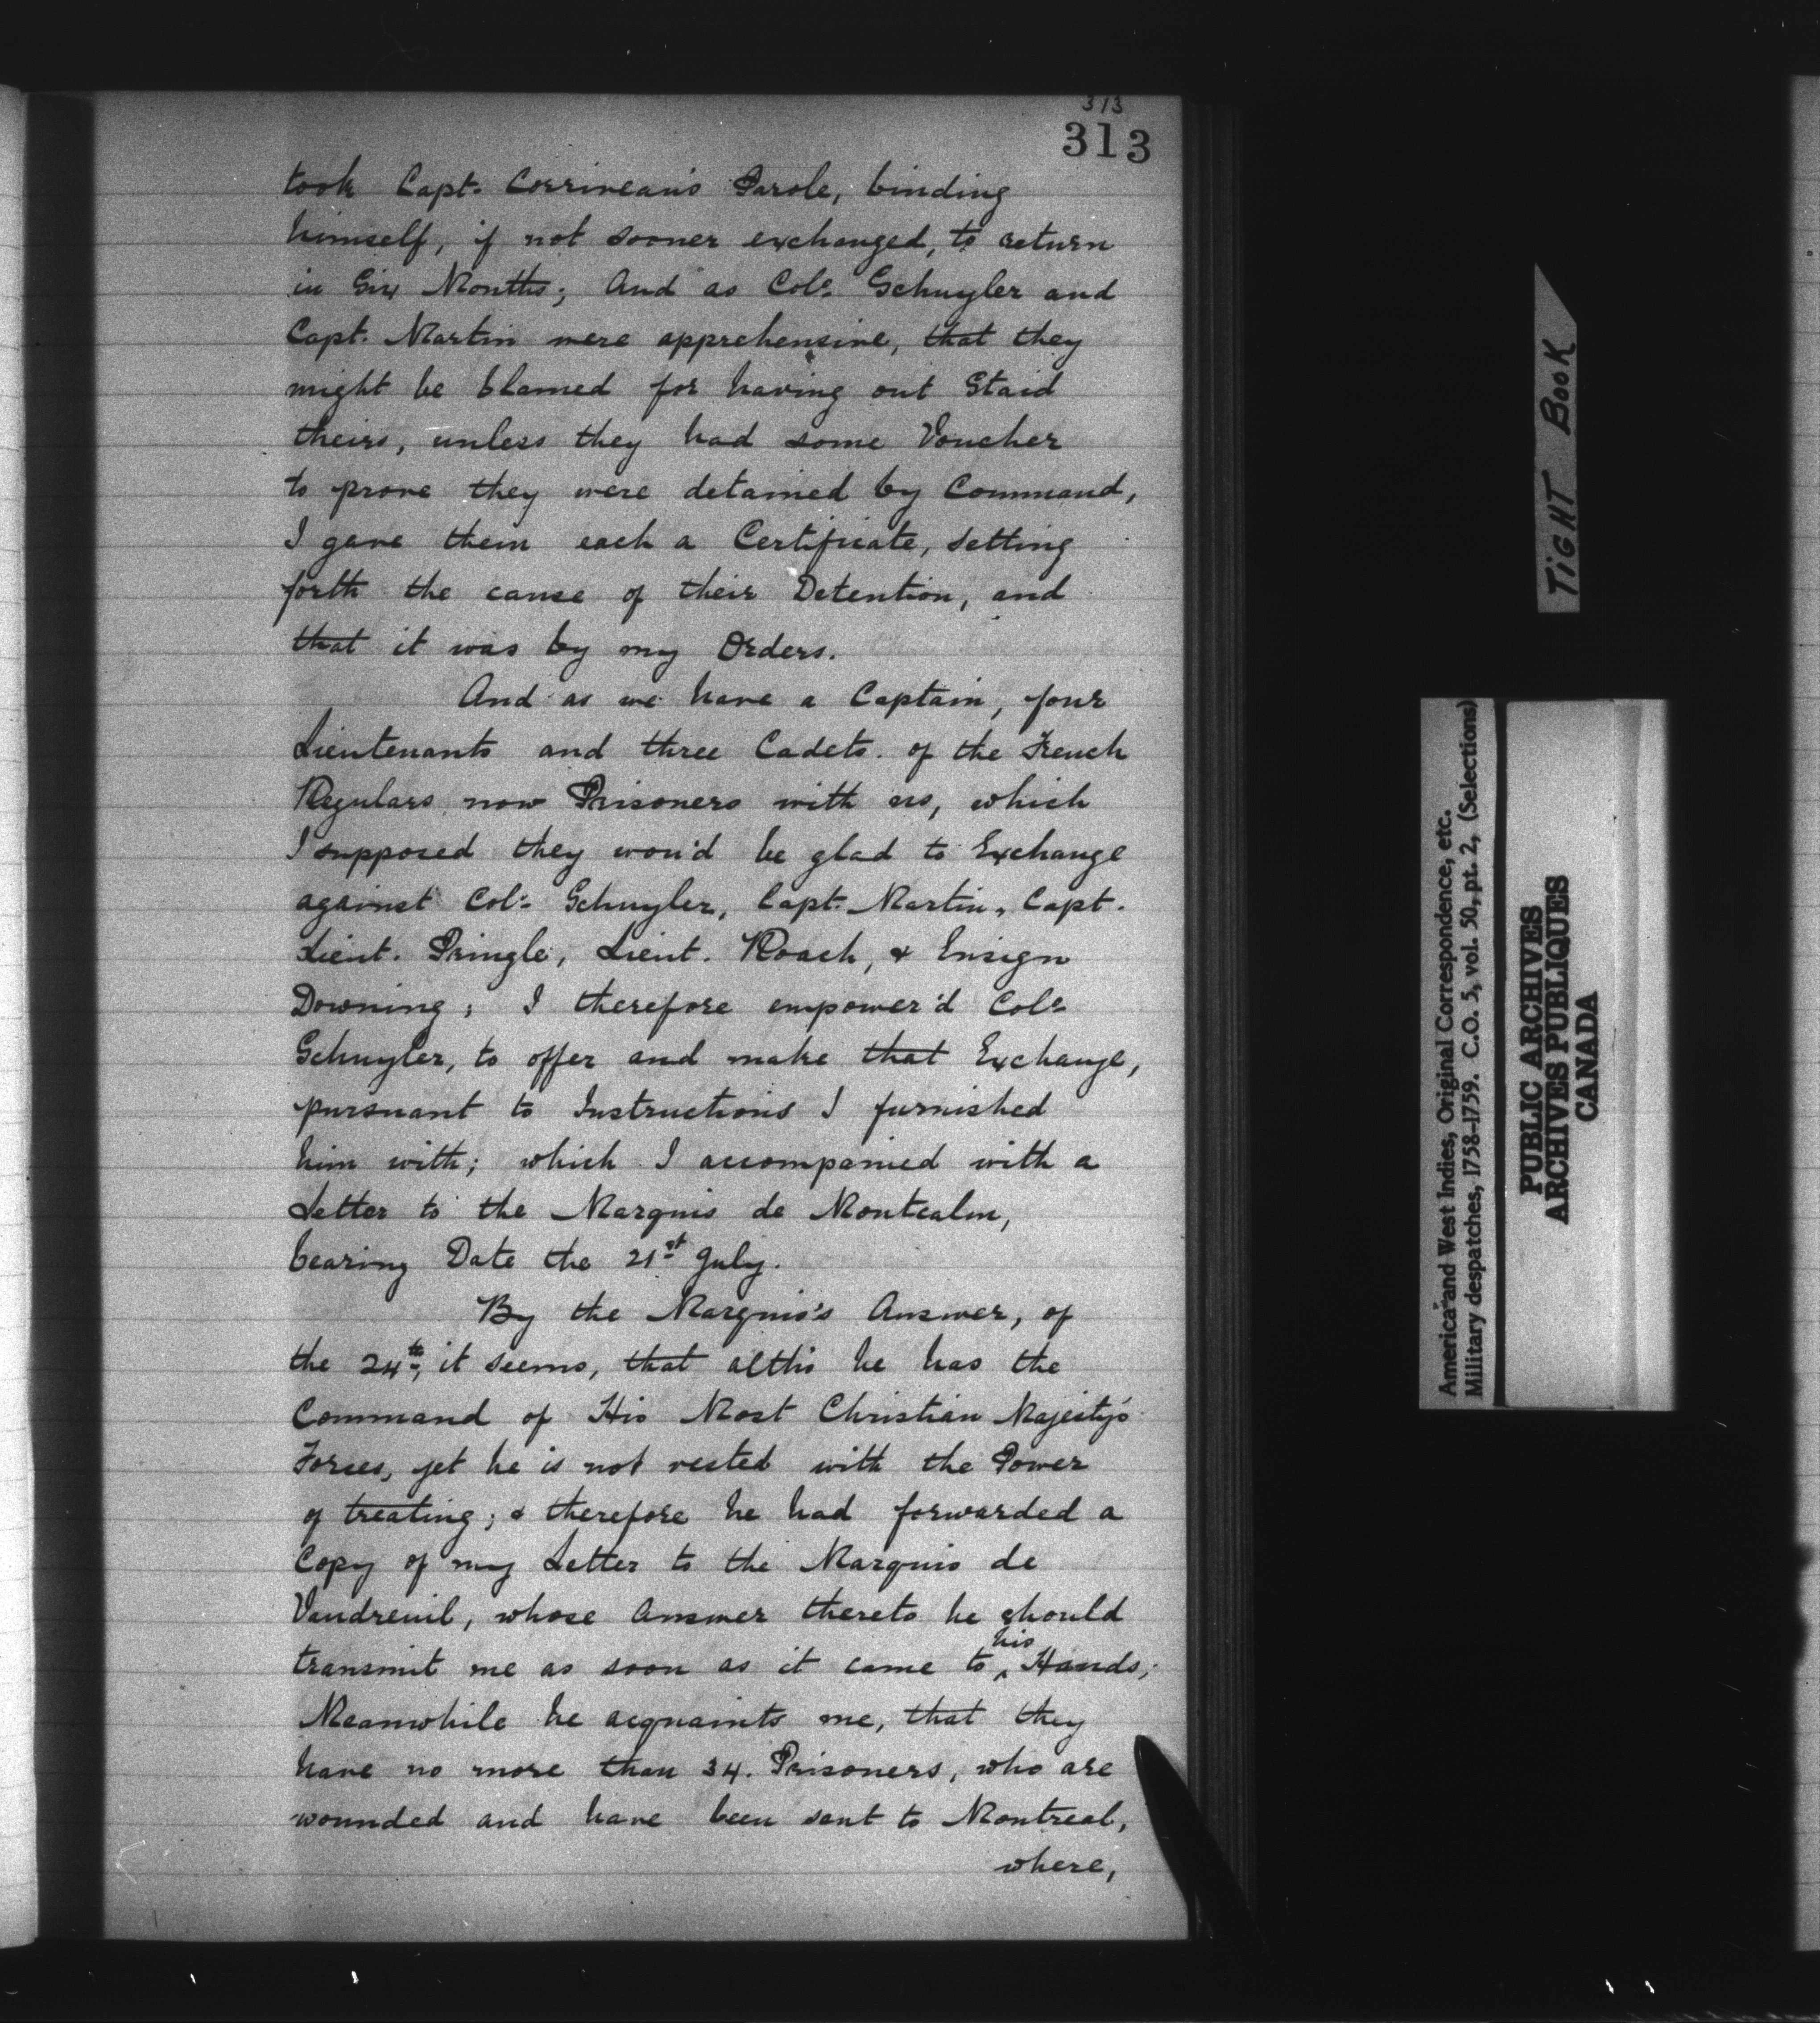 313
313
took Capt. Corriveau's Parole, binding
himself, if not sooner exchanged, to return
in Six Months; And as Colo. Schuyler and
Capt. Martin were apprehensive, that they
might be blamed for having out Staid
theirs, unless they had some Voucher
to prove they were detained by Command,
I gave them each a Certificate, setting
forth the cause of their Detention, and
that it was by my Orders.
And as we have a Captain, four
Lieutenants and three Cadets of the French
Regulars now Prisoners with us, which
I supposed they wou'd be glad to Exchange
against Colo. Schuyler, Capt. Martin, Capt.
Lieut. Pringle, Lieut. Roach, & Ensign
Downing; I therefore empower'd Colo.
Schuyler, to offer and make that Exchange,
pursuant to Instructions I furnished
him with; which I accompanied with a
Letter to the Marquis de Montcalm,
bearing Date the 21st July.
By the Marquis's Answer, of
the 24th, it seems, that altho' he has the
Command of His Most Christian Majesty's
Forces, yet he is not vested with the Power
of treating; & therefore he had forwarded a
Copy of my Letter to the Marquis de
Vaudreuil, whose Answer thereto he should
transmit me as soon as it came to his Hands;
Meanwhile he acquaints me, that they
have no more than 34. Prisoners, who are
wounded and have been sent to Montreal,
where,
TIGHT BOOK
America and West Indies, Original Correspondence, etc.
Military despatches, 1758-1759. C.O. 5, vol. 50, pt. 2, (Selections)
PUBLIC ARCHIVES
ARCHIVES PUBLIQUES
CANADA